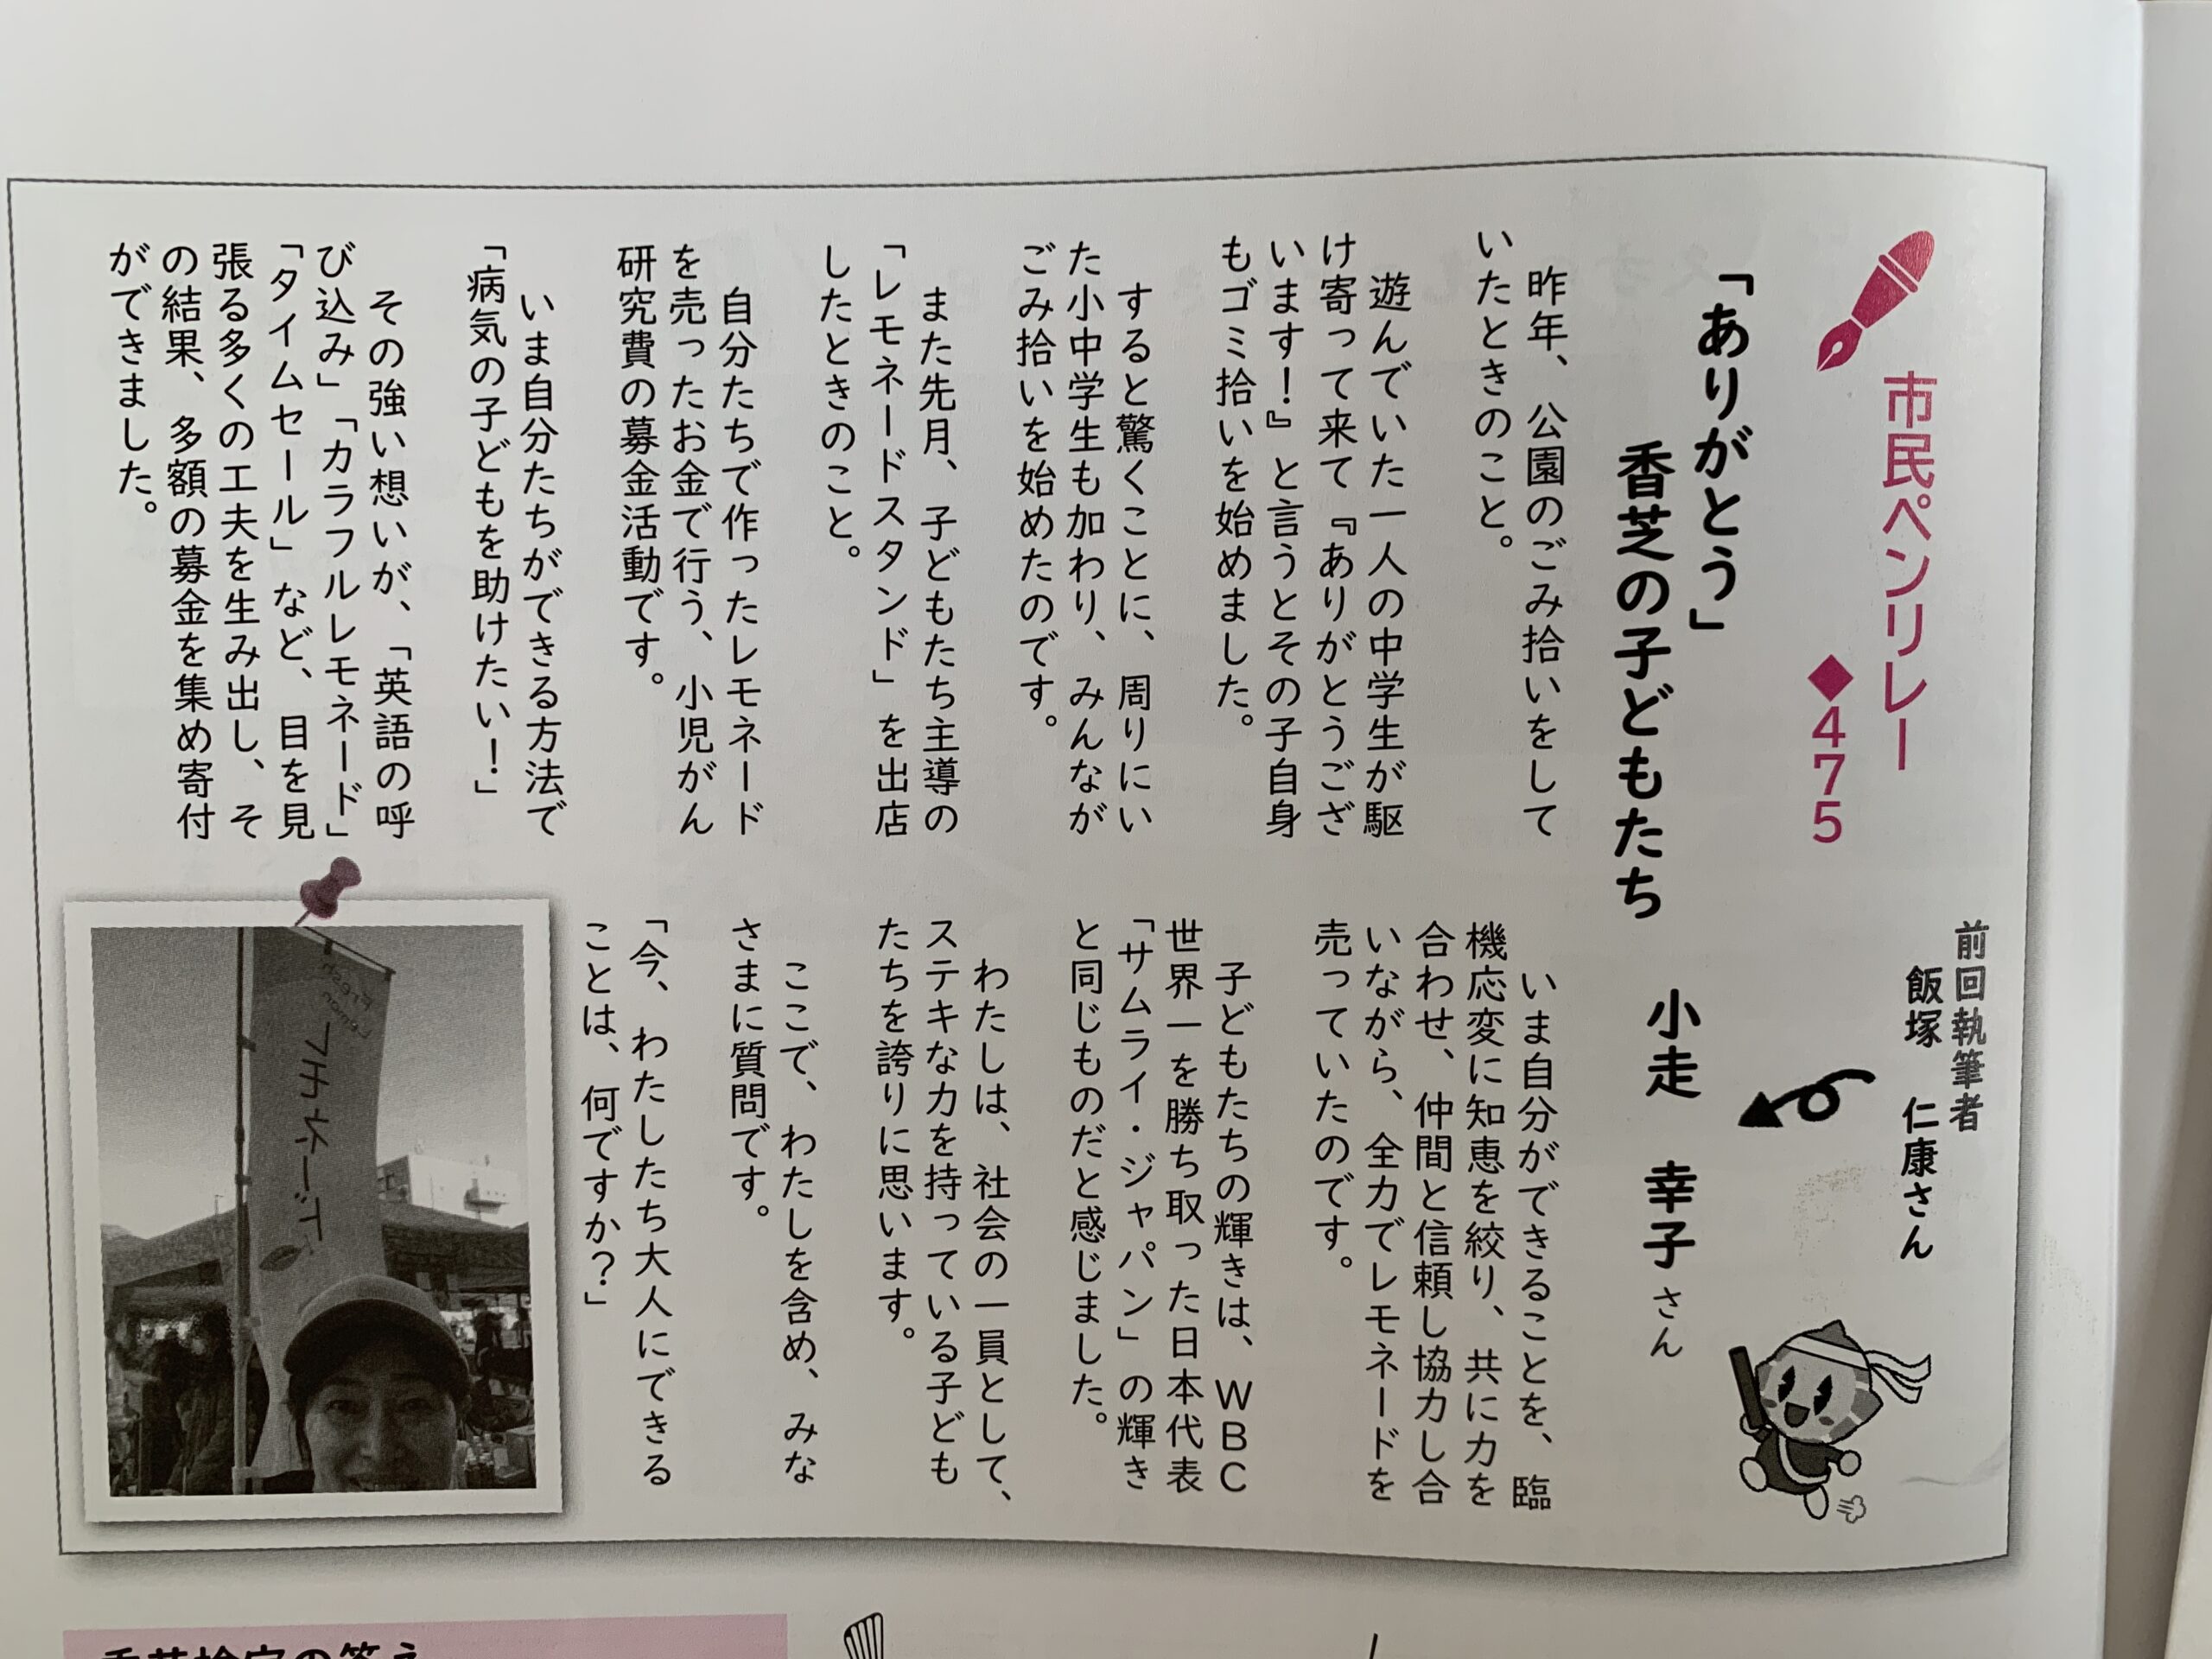 市民ペンリレー
◆475
前回執筆者
飯塚 仁康さん
「ありがとう」
香芝の子どもたち 小走 幸子さん
昨年、公園のごみ拾いをして
いたときのこと。
遊んでいた一人の中学生が駆
け寄って来て『ありがとうござ
います!』と言うとその子自身
もゴミ拾いを始めました。
すると驚くことに、周りにい
た小中学生も加わり、みんなが
ごみ拾いを始めたのです。
また先月、子どもたち主導の
「レモネードスタンド」を出店
したときのこと。
自分たちで作ったレモネード
を売ったお金で行う、小児がん
研究費の募金活動です。
いま自分たちができる方法で
「病気の子どもを助けたい!」
その強い想いが、「英語の呼
び込み」「カラフルレモネード」
「タイムセール」など、目を見
張る多くの工夫を生み出し、そ
の結果、多額の募金を集め寄付
ができました。
いま自分ができることを、臨
機応変に知恵を絞り、共に力を
合わせ、仲間と信頼し協力し合
いながら、全力でレモネードを
売っていたのです。
子どもたちの輝きは、WBC
世界一を勝ち取った日本代表
「サムライ・ジャパン」の輝き
と同じものだと感じました。
わたしは、社会の一員として、
ステキな力を持っている子ども
たちを誇りに思います。
ここで、わたしを含め、みな
さまに質問です。
「今、わたしたち大人にできる
ことは、何ですか?」
Fresh
Lemon
レモネード